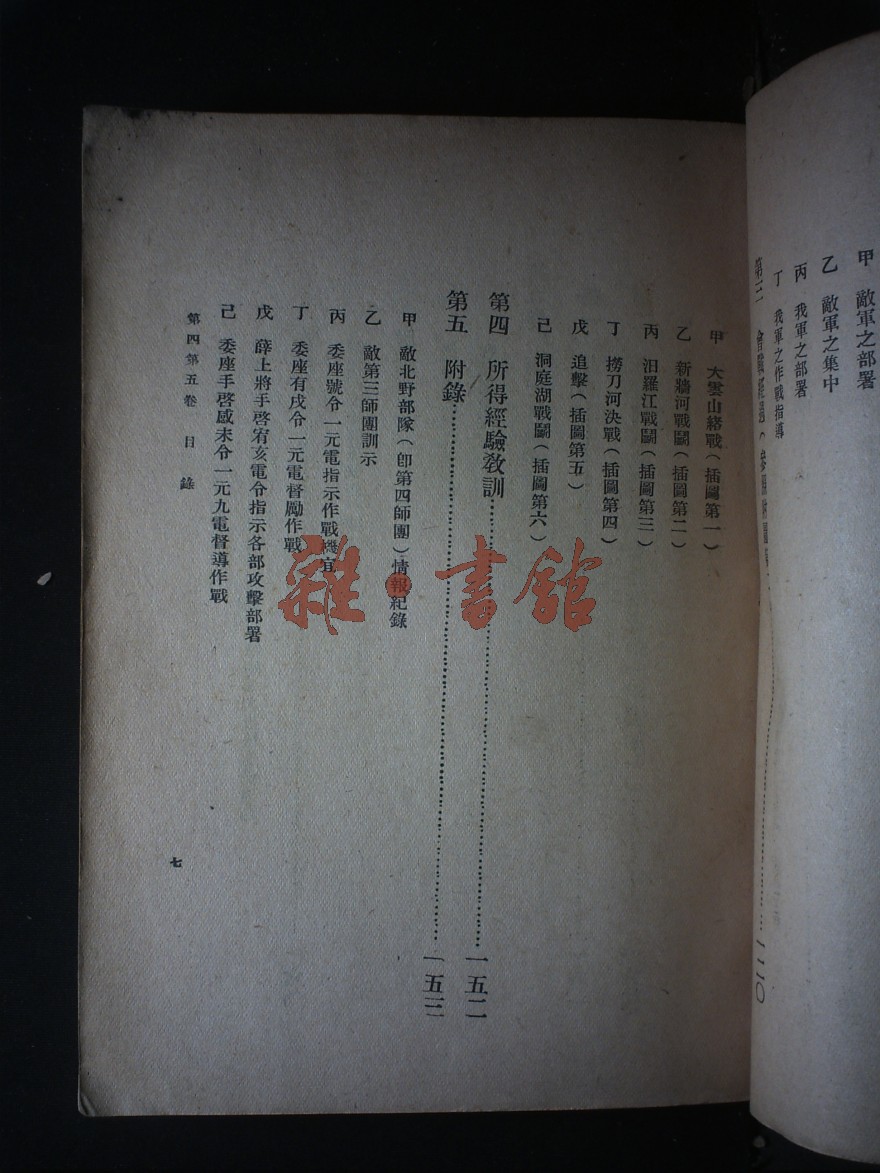 甲　敵軍之部署
乙　敵軍之集中
丙　我軍之部署
丁　我軍之作戰指導
第三　會戰經過（參照附圖第
甲　大雲山緒戰（插圖第一）
乙　新牆河戰鬭（插圖第二）
丙　汨羅江戰鬭（插圖第三）
丁　撈刀河決戰（插圖第四）
戊　追擊（插圖第五）
己　洞庭湖戰鬭（插圖第六）
第四　所得經驗敎訓……一五二
第五　附錄……一五三
甲　敵北野部隊（卽第四師團）情報紀錄
乙　敵第三師團訓示
丙　委座號令一元電指示作戰機宜
丁　委座有戌令一元電督勵作戰
戊　薛上將手啓宥亥電令指示各部攻擊部署
己　委座手啓感未令一元九電督導作戰
第四第五卷　目錄
七
雜·書館